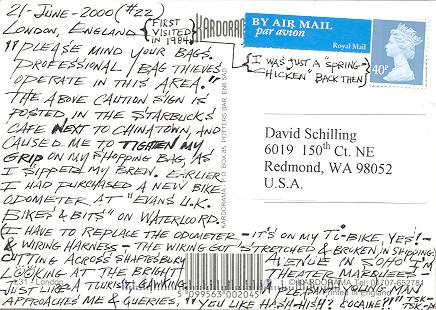 21-JUNE-2000 (#22)
LONDON, ENGLAND
{FIRST VISITED IN 1984}
"PLEASE MIND YOUR BAGS.
PROFESSIONAL BAG THIEVES
OPERATE IN THIS AREA."
THE ABOVE CAUTION SIGN IS
POSTED, IN THE STARBUCKS
CAFE NEXT TO CHINATOWN, AND
CAUSED ME TO TIGHTEN MY
GRIP ON MY SHOPPING BAG, AS
I SIPPED MY BREW. EARLIER
I HAD PURCHASED A NEW BIKE
ODOMETER AT "EVANS U.K.
BIKES & BITS" ON WATERLOO RD.
(I HAVE TO REPLACE THE ODOMETER - IT'S ON MY TI-BIKE, YES! -
& WIRING HARNESS - THE WIRING GOT STRETCHED & BROKEN IN SHIPPING.)
CUTTING ACROSS SHAFTESBURY AVENUE IN SOHO I'M
LOOKING AT THE BRIGHT THEATER MARQUEES
JUST LIKE A TOURIST GAWKING. A PLEASANT YOUNG MAN
APPROACHES ME & QUERIES, "YOU LIKE HASH-HISH? COCAINE!?"
TSK-TSK-
KARDORAMA
BY AIR MAIL
par avion
Royal Mail
40P
{I WAS JUST A "SPRING-
CHICKEN" BACK THEN}
KARDORAMA LTD BOX 85, POTTERS BAR, ENGLAND
David Schilling
6019 150th Ct. NE
Redmond, WA 98052
U.S.A.
31 - London
5 099563 002045
© KARDORAMA Tel: 01707-652781
Printed in England